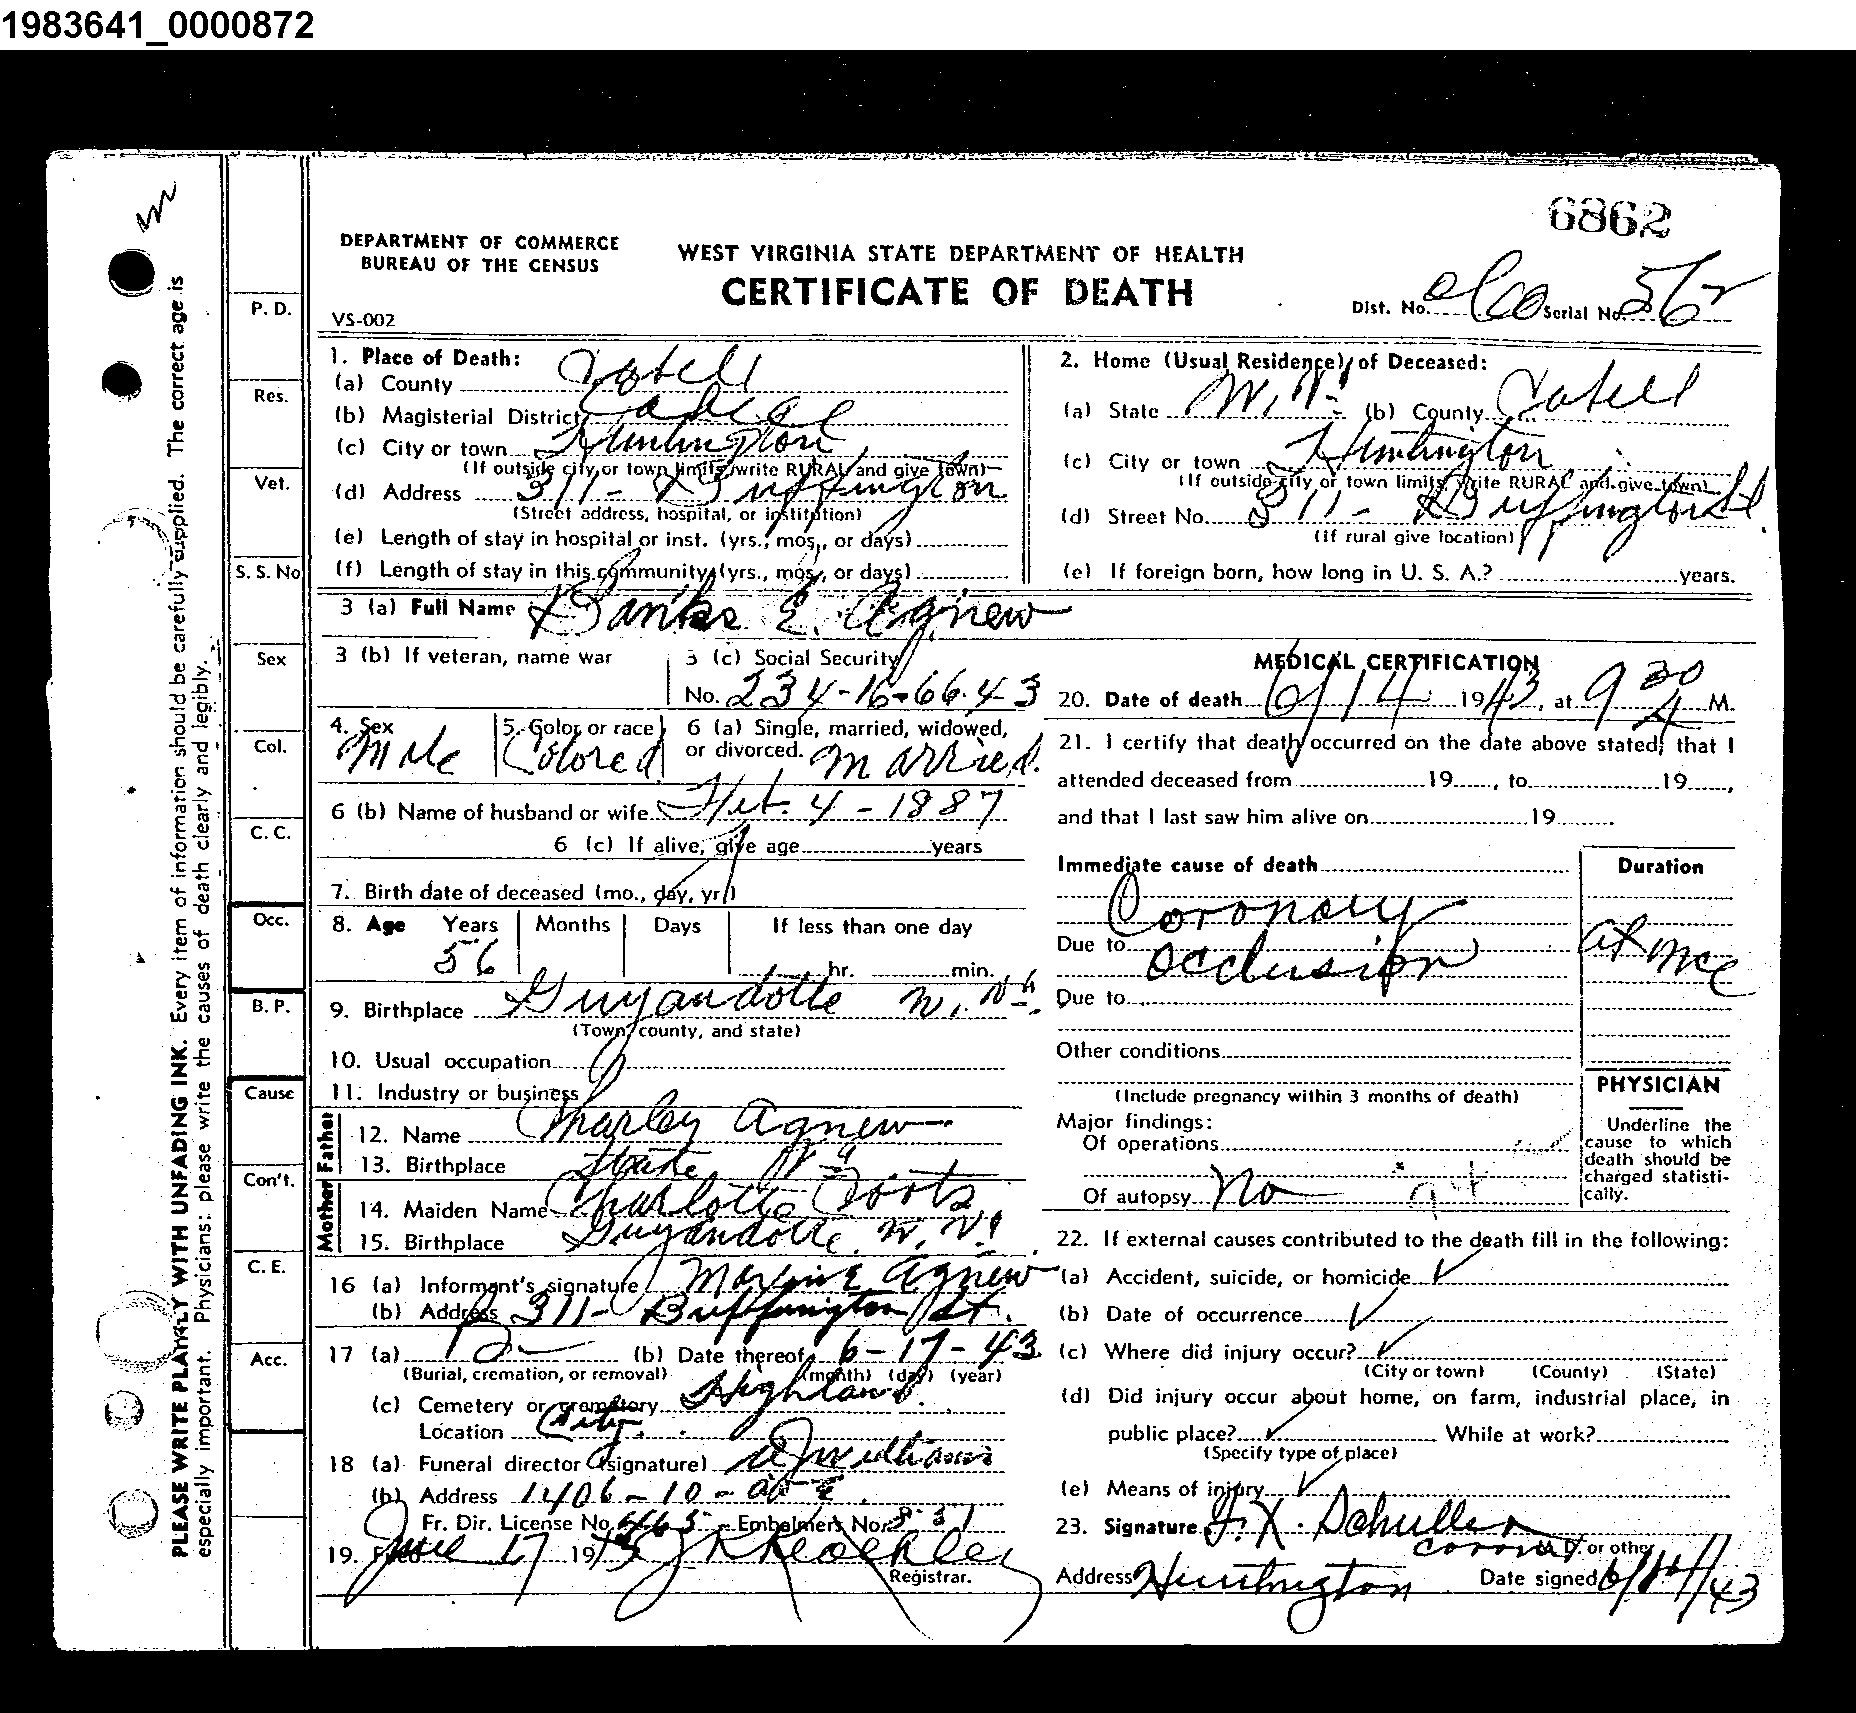 1983641_0000872
6862
DEPARTMENT OF COMMERCE
BUREAU OF THE CENSUS
WEST VIRGINIA STATE DEPARTMENT OF HEALTH
CERTIFICATE OF DEATH
VS-002
Dist. No. Serial No. 562
PLEASE WRITE PLAINLY WITH UNFADING INK. Every item of information should be carefully supplied. The correct age is
especially important. Physicians: please write the causes of death clearly and legibly.
P. D.
Res.
Vet.
S. S. No
Sex
Col.
C. C.
Occ.
B. P.
Cause
Con't.
C. E.
Acc.
1. Place of Death:
(a) County Cabell
(b) Magisterial District
(c) City or town Huntington
(If outside city or town limits, write RURAL and give town)
(d) Address 311- Buffington
(Street address, hospital, or institution)
(e) Length of stay in hospital or inst. (yrs., mos., or days)
(f) Length of stay in this community (yrs., mos., or days)
2. Home (Usual Residence) of Deceased:
(a) State W. Va. (b) County Cabell
(c) City or town Huntington
(If outside city or town limits, write RURAL and give town)
(d) Street No. 311- Buffington St.
(If rural give location)
(e) If foreign born, how long in U. S. A.? years.
3 (a) Full Name Banks E. Agnew
3 (b) If veteran, name war
3 (c) Social Security
No. 234-16-6643
4. Sex Male
5. Color or race Colored
6 (a) Single, married, widowed,
or divorced. Married.
6 (b) Name of husband or wife Feb. 4 - 1887
6 (c) If alive, give age years
7. Birth date of deceased (mo., day, yr.)
8. Age Years Months Days If less than one day
56 hr. min.
9. Birthplace Guyandotte W. Va.
(Town, county, and state)
10. Usual occupation
11. Industry or business
Father
12. Name Charley Agnew
13. Birthplace State Va
Mother
14. Maiden Name Charlotte
15. Birthplace Guyandotte. W. Va.
16 (a) Informant's signature Maxine Agnew
(b) Address 311- Buffington St.
17 (a) B (b) Date thereof 6-17-43
(Burial, cremation, or removal) (month) (day) (year)
(c) Cemetery or crematory Highland.
Location City.
18 (a) Funeral director (signature) Williams
(b) Address 1406-10-ave.
Fr. Dir. License No. 465 Embalmers No. 831
19. Filed June 17 1943
Registrar.
MEDICAL CERTIFICATION
20. Date of death 6/14 1943, at 9 30 A M.
21. I certify that death occurred on the date above stated; that I
attended deceased from 19 , to 19 ,
and that I last saw him alive on 19 .
Immediate cause of death Duration
Coronary
Due to occlusion at once
Due to
Other conditions
(Include pregnancy within 3 months of death)
Major findings:
Of operations
Of autopsy No
PHYSICIAN
Underline the
cause to which
death should be
charged statisti-
cally.
22. If external causes contributed to the death fill in the following:
(a) Accident, suicide, or homicide
(b) Date of occurrence
(c) Where did injury occur?
(City or town) (County) (State)
(d) Did injury occur about home, on farm, industrial place, in
public place? While at work?
(Specify type of place)
(e) Means of injury
23. Signature F. X. Schuller
coroner M. D. or other
Address Huntington Date signed 6/14/43